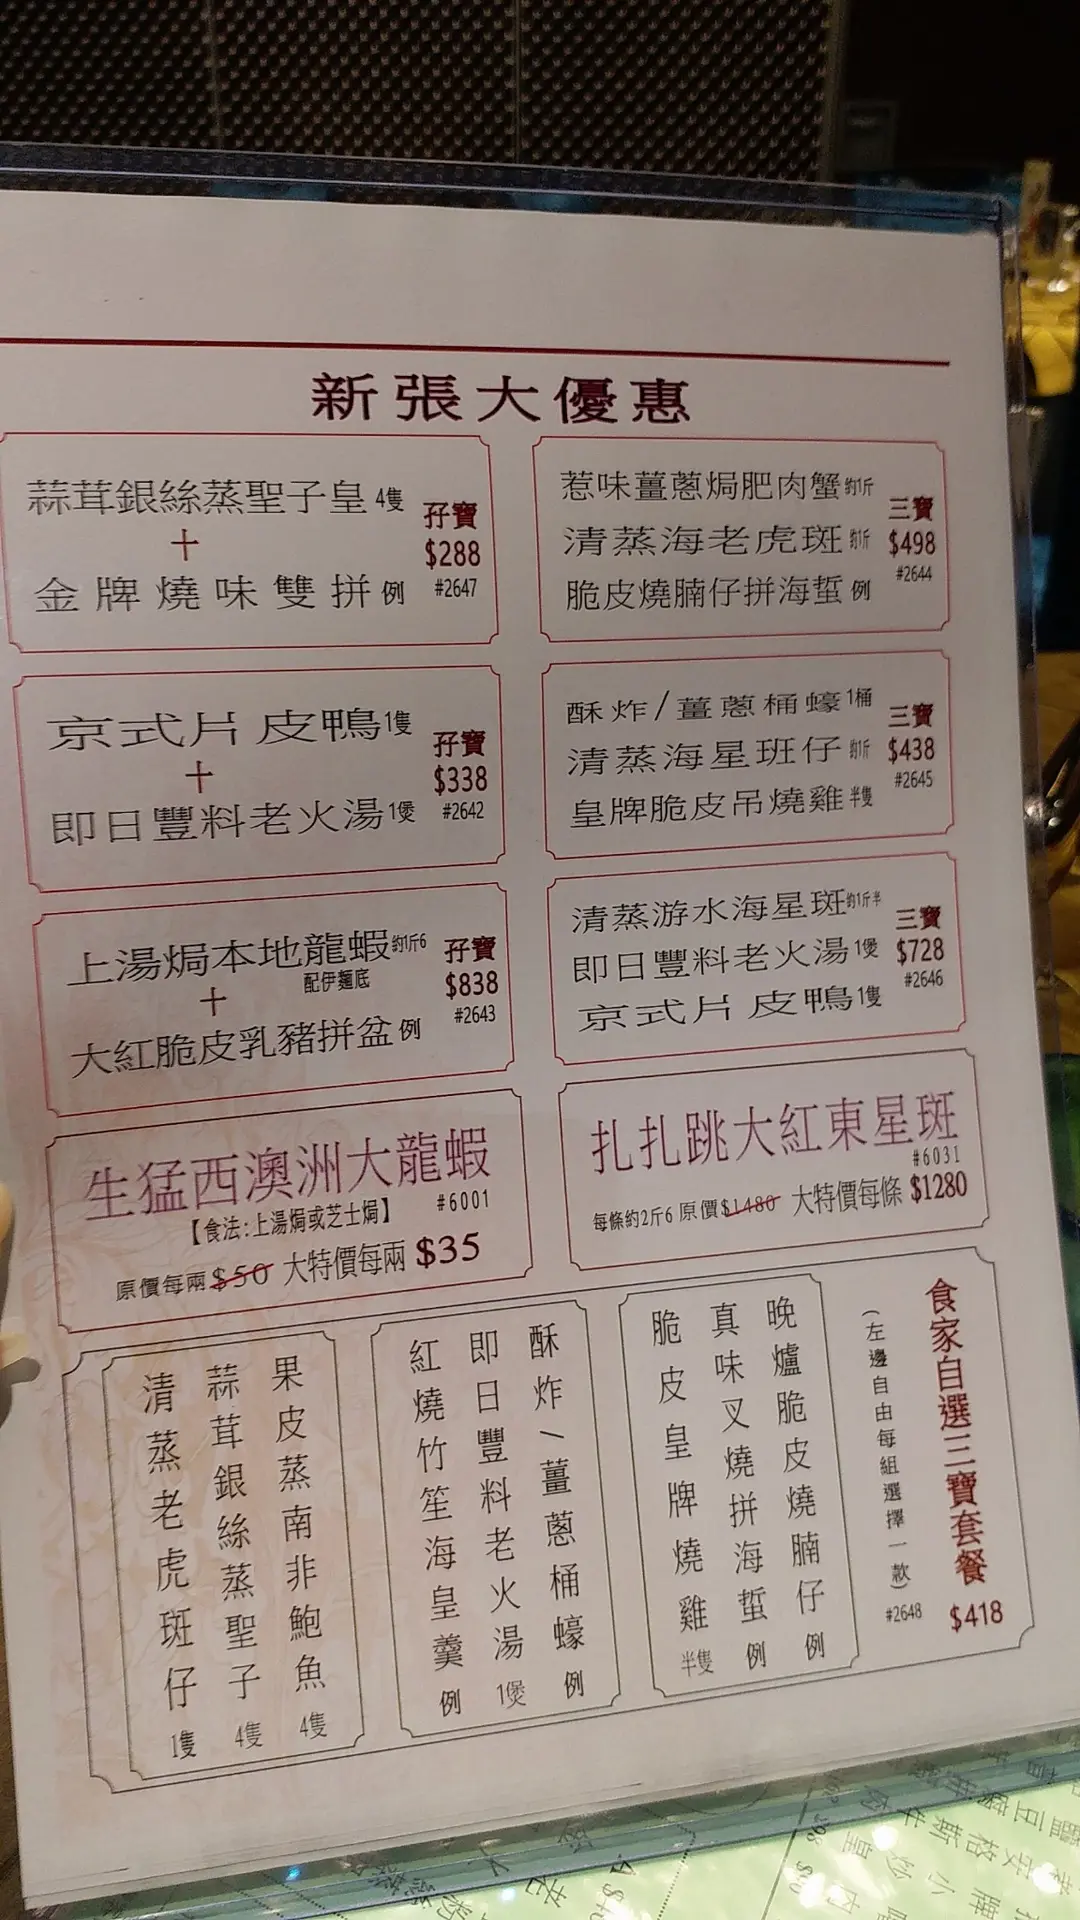 新張大優惠
蒜茸銀絲蒸聖子皇 4隻
十
金牌燒味雙拼 例
孖寶
$288
#2647
惹味薑蔥焗肥肉蟹 約1斤
清蒸海老虎斑 約1斤
脆皮燒腩仔拼海蜇 例
三寶
$498
#2644
京式片皮鴨 1隻
十
即日豐料老火湯 1煲
孖寶
$338
#2642
酥炸/薑蔥桶蠔 1桶
清蒸海星班仔 約1斤
皇牌脆皮吊燒雞 半隻
三寶
$438
#2645
上湯焗本地龍蝦 約1斤6
配伊麵底
十
大紅脆皮乳豬拼盆 例
孖寶
$838
#2643
清蒸游水海星斑 約1斤半
即日豐料老火湯 1煲
京式片皮鴨 1隻
三寶
$728
#2646
生猛西澳洲大龍蝦
【食法:上湯焗或芝士焗】 #6001
原價每兩 $50 大特價每兩 $35
扎扎跳大紅東星斑
#6031
每條約2斤6 原價$1480 大特價每條 $1280
食家自選三寶套餐 $418
(左邊自由每組選擇一款) #2648
晚爐脆皮燒腩仔 例
真味叉燒拼海蜇 例
脆皮皇牌燒雞 半隻
酥炸/薑蔥桶蠔 例
即日豐料老火湯 1煲
紅燒竹笙海皇羹 例
果皮蒸南非鮑魚 4隻
蒜茸銀絲蒸聖子 4隻
清蒸老虎斑仔 1隻